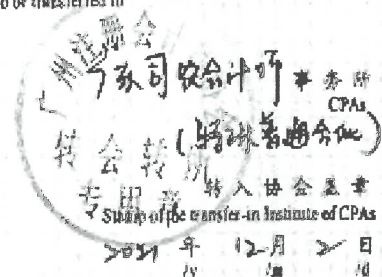 to be transferred in
广州注册会
广东司农会计师事务所
CPAs
(特殊普通合伙)
转会转所
专用章
转入协会盖章
Stamp of the transfer-in Institute of CPAs
2021 年 12月 2 日
/y /m /d